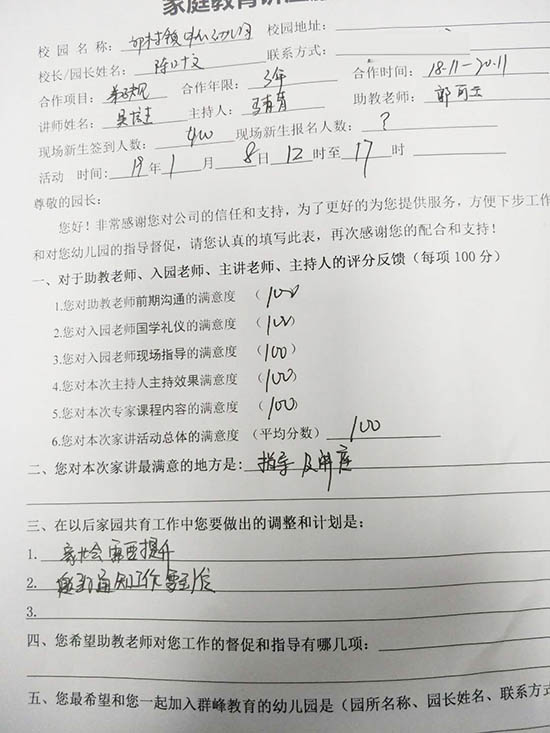 家庭教育讲座
校 园 名 称： 邻村镇中心幼儿园 校园地址：
校长/园长姓名： 陈 联系方式：
合作项目： 弟子规 合作年限： 3年 合作时间： 18.11—20.11
讲师姓名： 吴 主持人： 青青 助教老师： 郭
现场新生签到人数： 400 现场新生报名人数： ?
活动 时间： 19 年 1 月 8 日 12 时至 17 时
尊敬的园长：
您好！非常感谢您对公司的信任和支持，为了更好的为您提供服务，方便下步工作
和对您幼儿园的指导督促，请您认真的填写此表，再次感谢您的配合和支持！
一、对于助教老师、入园老师、主讲老师、主持人的评分反馈（每项100分）
1.您对助教老师前期沟通的满意度 （100）
2.您对入园老师国学礼仪的满意度 （100）
3.您对入园老师现场指导的满意度 （100）
4.您对本次主持人主持效果的满意度 （100）
5.您对本次专家课程内容的满意度 （100）
6.您对本次家讲活动总体的满意度 （平均分数） 100
二、您对本次家讲最满意的地方是: 指导及讲座
三、在以后家园共育工作中您要做出的调整和计划是：
1. 家长会需要提升
2. 通知工作要到位
3.
四、您希望助教老师对您工作的督促和指导有哪几项：
五、您最希望和您一起加入群峰教育的幼儿园是（园所名称、园长姓名、联系方式